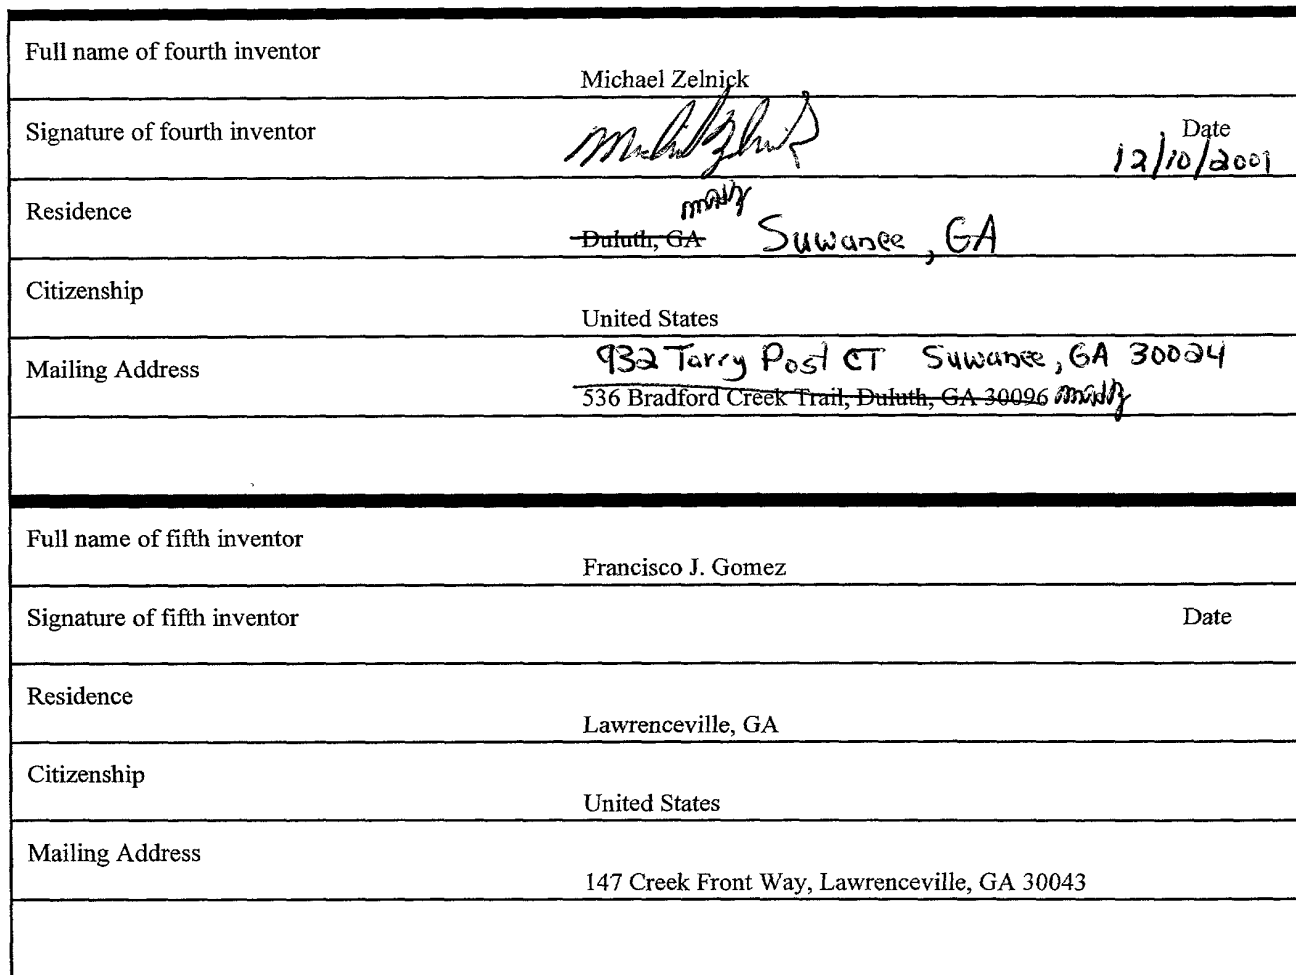 Full name of fourth inventor
Michael Zelnick
Signature of fourth inventor
Date
12/10/2001
Residence
Duluth, GA Suwanee, GA
Citizenship
United States
Mailing Address
932 Tarry Post CT Suwanee, GA 30024
536 Bradford Creek Trail, Duluth, GA 30096
Full name of fifth inventor
Francisco J. Gomez
Signature of fifth inventor
Date
Residence
Lawrenceville, GA
Citizenship
United States
Mailing Address
147 Creek Front Way, Lawrenceville, GA 30043